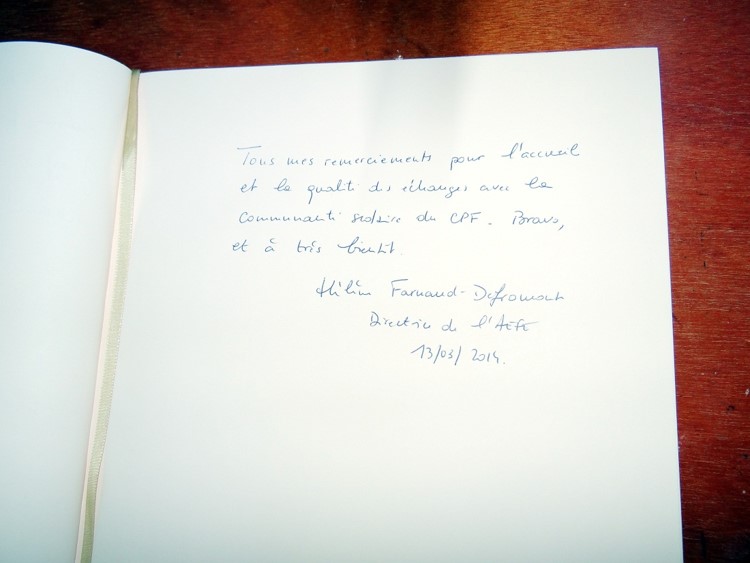 Tous mes remerciements pour l'accueil
et la qualité des échanges avec la
communauté scolaire du CPF. Bravo,
et à très bientôt.
Hélène Farnaud-Defromont
Directrice de l'AEFE
13/03/2014.